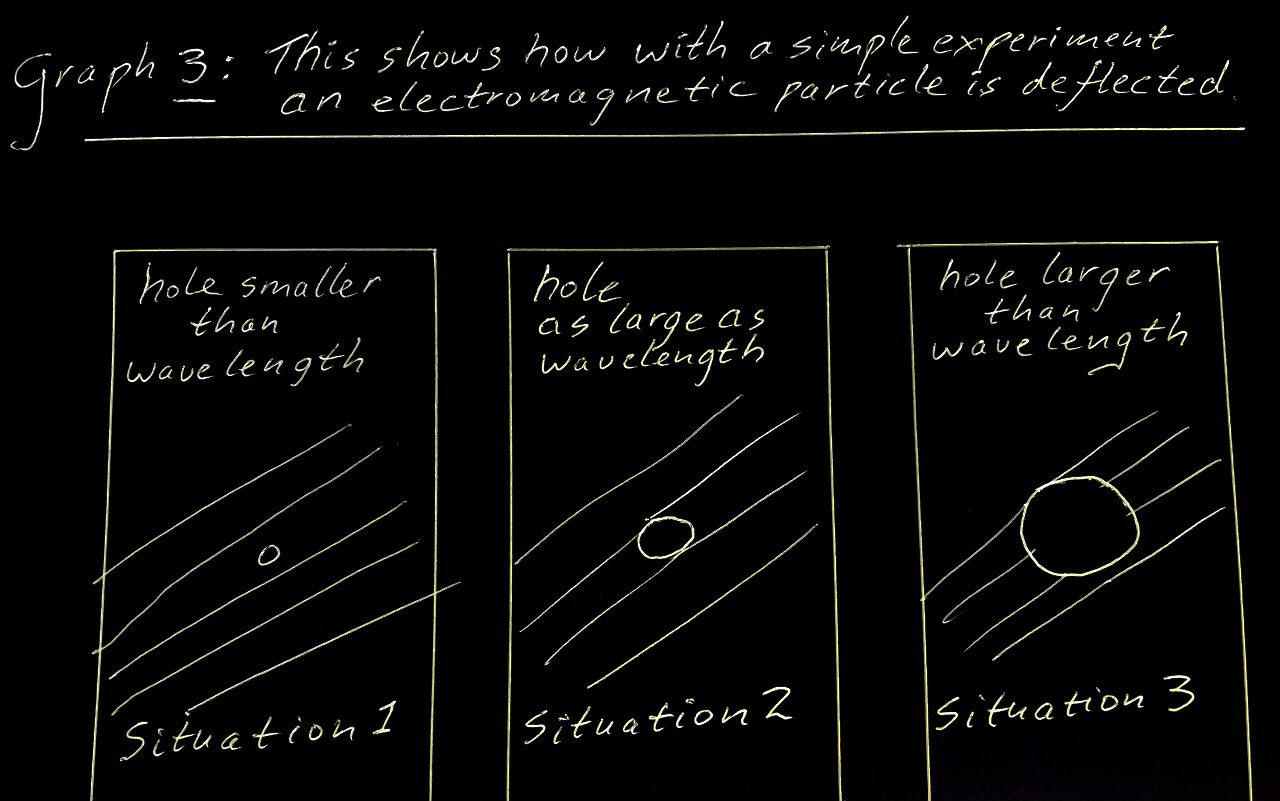 Graph 3: This shows how with a simple experiment
an electromagnetic particle is deflected.
hole smaller
than
wavelength
Situation 1
hole
as large as
wavelength
Situation 2
hole larger
than
wavelength
Situation 3